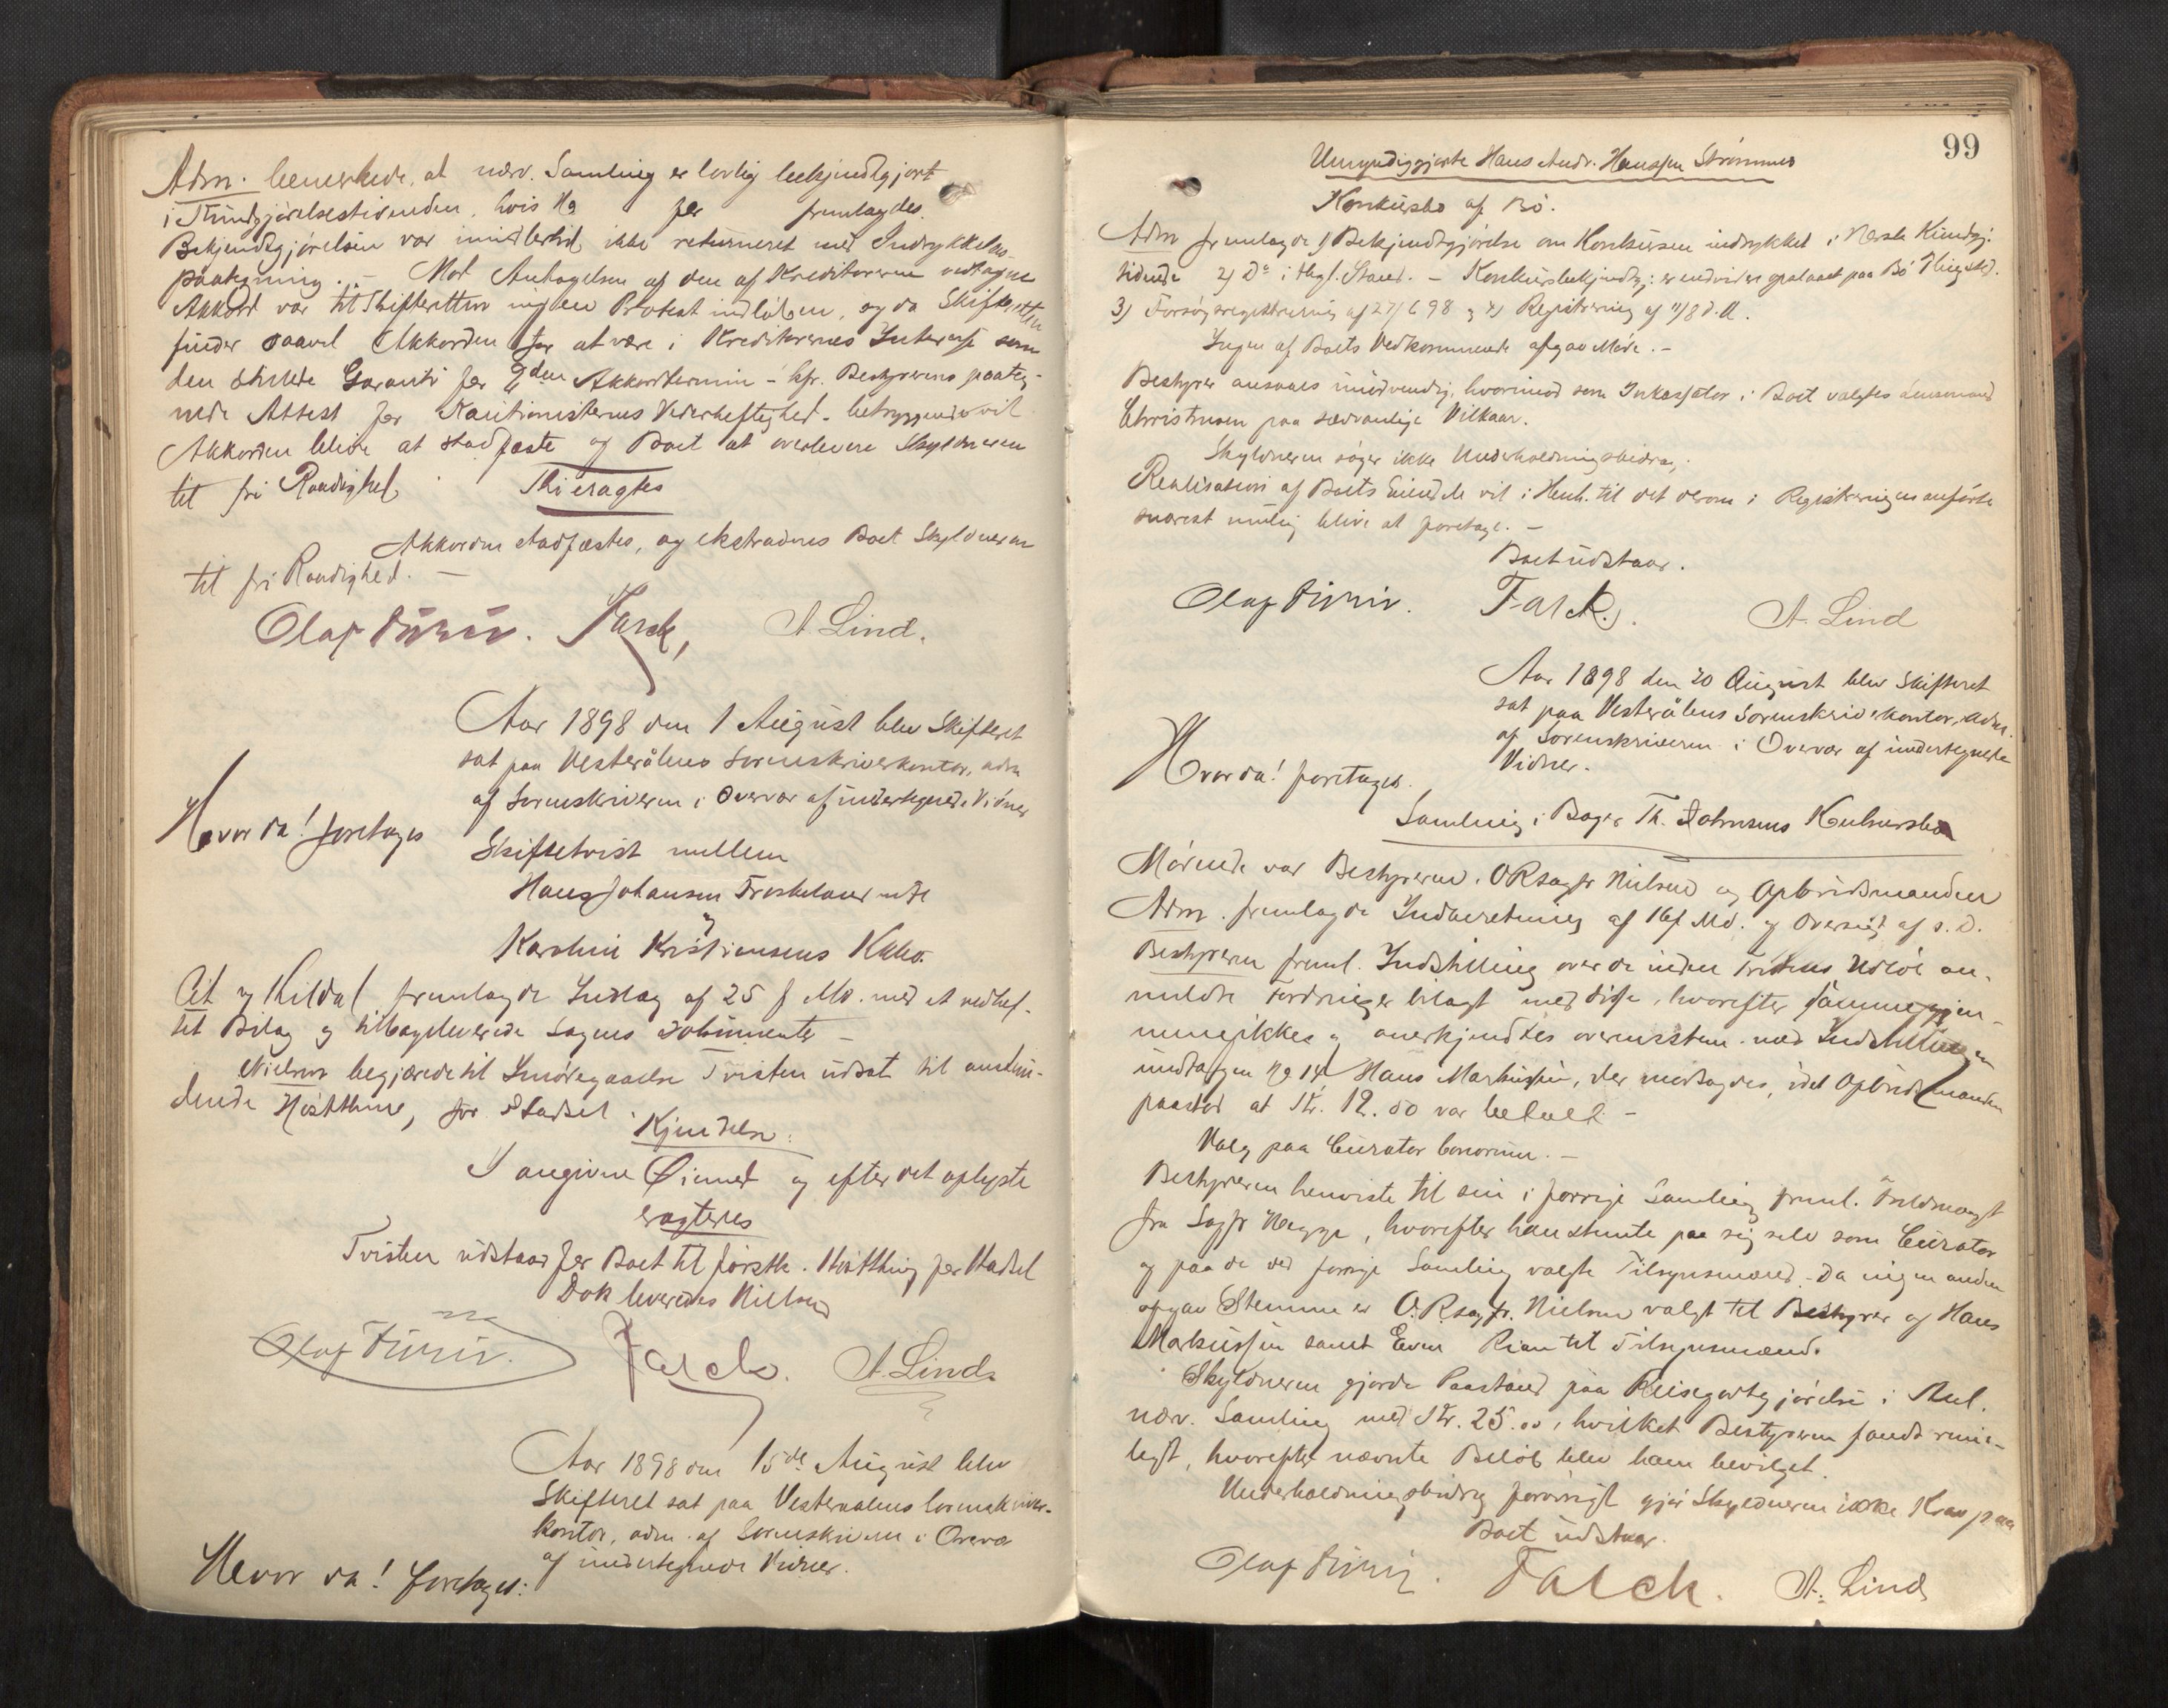 Adm. bemerkede, at nærv. Samling er lovlig bekjendtgjort
i Kundgjørelsestidenden, hvis No for fremlagdes.
Bekjendtgjørelsen var imidlertid ikke returneret med Indrykkelses-
paategning. – Mod Antagelsen af den af Kreditorerne vedtagne
Akkord var til Skifteretten ingen Protest indløben, og da Skifteretten
finder saavel Akkorden for at være i Kreditorernes Interesse som
den stillede Garanti for Akkordtermin – kfr. Bestyrerens paateg-
nede Attest for Kautionisternes Vederheftighed – betryggende vil
Akkorden blive at stadfæste og Boet at overlevere Skyldneren
til fri Raadighed. Thi eragtes
Akkorden stadfæstes, og ekstraderes Boet Skyldneren
til fri Raadighed. –
Olaf Falck, A Lind.
Aar 1898 den 1 August blev Skifteret
sat paa Vesterålens Sorenskriverkontor, adm
af Sorenskriveren i Overvær af undertegnede Vidner
Hvor da! foretages
Skiftetvist mellem
Hans Johansen Froskeland
og
Karolini Kristiansens
Cit og Kildal fremlagde Indlæg af 25 f Md. med et vedhef-
tet Bilag og tilbageleverede Sagens Dokumenter –
Nielsen begjærede til Imødegaaelse Tvisten udsat til anstun-
dende Høstthing for Hadsel.
Kjendelse:
I angivne Øiemed og efter det oplyste
eragtes
Tvisten udstaar for Boet til førstk. Høstthing for Hadsel
Dok leveredes Nielsen
Olaf Falck. A. Lind
Aar 1898 den 15de August blev
Skifteret sat paa Vesteraalens Sorenskriver-
kontor, adm. af Sorenskriveren i Overvær
af undertegnede Vidner.
Hvor da! foretages:
99
Umyndiggjorte Hans Andr. Hanssen Strømmes
Konkursbo af Bø.
Adm fremlagde 1) Bekjendtgjørelse om Konkursen indrykket i Norsk Kundgj.
tidende 2) Do i – Konkursbekjendtg: er endvidere opslaaet paa Bø Thingsted.
3) Forsøgsregistrering af 27/6 98 og 4) Registrering af 11/8 d. A.
Ingen af Boets Vedkommende afgav Møde. –
Bestyrer ansaaes unødvendig, hvorimod som Inkassator i Boet valgtes Lensmand
Christensen paa sædvanlige Vilkaar.
Skyldneren søger ikke Underholdningsbidrag.
Realisation af Boets Eiendele vil i Henh. til det derom i Registreringen anførte
snarest mulig blive at foretage. –
Boet udstaar.
Olaf Falck. A. Lind
Aar 1898 den 20 August blev Skifteret
sat paa Vesterålens Sorenskriverkontor, adm.
af Sorenskriveren i Overvær af undertegnede
Vidner.
Hvor da! foretages.
Samling i Bager Th. Johnsens Konkursbo
Mødende var Bestyreren, ORsagfr Nielsen og Opbudsmanden
Adm. fremlagde Indberetning af 16 f Md. og Oversigt af s. D.
Bestyreren freml. Indstilling over de inden Fristens Udløb an-
meldte Fordringer bilagt med disse, hvorefter samme gjen-
nemgikkes og anerkjendtes overensstem. med Indstillingen
undtagen No 14 Hans Markussen, der nedsattes, idet Opbudsmanden
paastod at Kr. 12.50 var betalt –
Valg paa Curator bonorum. –
Bestyreren henviste til sin i forrige Samling freml. Fuldmagt
fra Sagfr Hegge, hvorefter han stemte paa sig selv som Curator
og paa de ved forrige Samling valgte Tilsynsmænd. Da ingen anden
afgav Stemme er O.R.sagfr. Nielsen valgt til Bestyrer og Hans
Markussen samt Even Rian til Tilsynsmænd.
Skyldneren gjorde Paastand paa Reisegodtgjørelse i Anl.
nærv. Samling med Kr. 25.00, hvilket Bestyreren fandt rime-
ligt, hvorefter nævnte Beløb blev ham bevilget.
Underholdningsbidrag forøvrigt gjør Skyldneren ikke Krav paa
Boet udstaar.
Olaf Falck. A. Lind